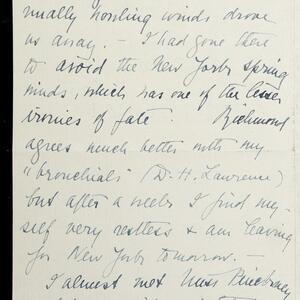 nually howling winds drove
us away. – I had gone there
to avoid the New York spring
winds, which was one of the lesser
ironies of fate. Richmond
agrees much better with my
"bronchials" (D. H. Lawrence)
but after a week I find my-
self very restless & am leaving
for New York tomorrow. –
I almost met Miss Pinckney